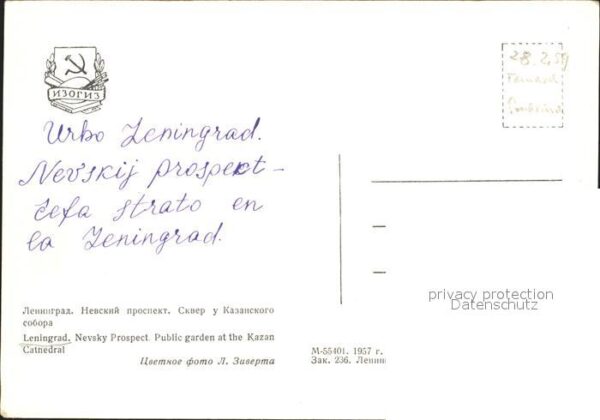 ИЗОГИЗ
28.2.59
Urbo Leningrad.
Nevskij prospekt-
ĉefa strato en
la Leningrad.
privacy protection
Datenschutz
Ленинград. Невский проспект. Сквер у Казанского
собора
Leningrad, Nevsky Prospect. Public garden at the Kazan
Cathedral
Цветное фото Л. Зиверта
М-55401. 1957 г.
Зак. 236. Ленин